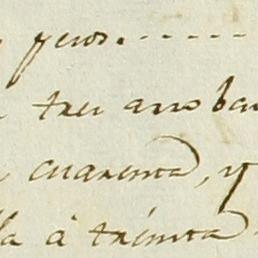 pesos.------
tres arroba
cuarenta, y
la à tréinta